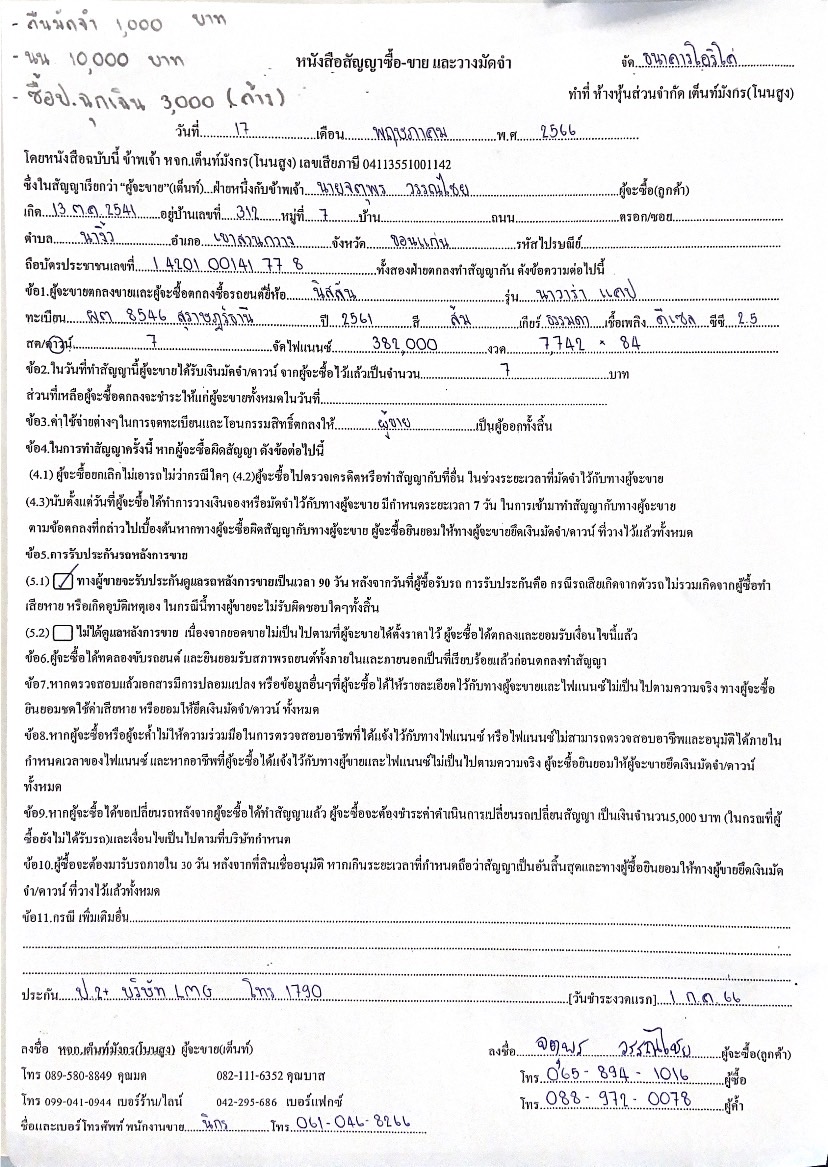 - คืนมัดจำ 1,000 บาท
- นน 10,000 บาท
- ซื้อป.ฉุกเฉิน 3,000 (ค้าง)
หนังสือสัญญาซื้อ-ขาย และวางมัดจำ
จัด ธนาคารไอซีไอ
ทำที่ ห้างหุ้นส่วนจำกัด เต็นท์มังกร(โนนสูง)
วันที่ 17 เดือน พฤษภาคม พ.ศ 2566
โดยหนังสือฉบับนี้ ข้าพเจ้า หจก.เต็นท์มังกร(โนนสูง) เลขเสียภาษี 04113551001142
ซึ่งในสัญญาเรียกว่า "ผู้จะขาย"(เต็นท์)...ฝ่ายหนึ่งกับข้าพเจ้า นายจตุพร วรรณไชย ผู้จะซื้อ(ลูกค้า)
เกิด 13 ต.ค. 2541 อยู่บ้านเลขที่ 312 หมู่ที่ 7 บ้าน ถนน ตรอก/ซอย
ตำบล นางิ้ว อำเภอ เขาสวนกวาง จังหวัด ขอนแก่น รหัสไปรษณีย์
ถือบัตรประชาชนเลขที่ 1 4201 00141 77 8 ทั้งสองฝ่ายตกลงทำสัญญากัน ดังข้อความต่อไปนี้
ข้อ1.ผู้จะขายตกลงขายและผู้จะซื้อตกลงซื้อรถยนต์ยี่ห้อ นิสสัน รุ่น นาวาร่า แคป
ทะเบียน ผต 8546 สุราษฎร์ธานี ปี 2561 สี ส้ม เกียร์ ธรรมดา เชื้อเพลิง ดีเซล ซีซี 2.5
สด/ดาวน์ 7 จัดไฟแนนซ์ 382,000 งวด 7,742 × 84
ข้อ2.ในวันที่ทำสัญญานี้ผู้จะขายได้รับเงินมัดจำ/ดาวน์ จากผู้จะซื้อไว้แล้วเป็นจำนวน 7 บาท
ส่วนที่เหลือผู้จะซื้อตกลงจะชำระให้แก่ผู้จะขายทั้งหมดในวันที่
ข้อ3.ค่าใช้จ่ายต่างๆในการจดทะเบียนและโอนกรรมสิทธิ์ตกลงให้ ผู้ขาย เป็นผู้ออกทั้งสิ้น
ข้อ4.ในการทำสัญญาครั้งนี้ หากผู้จะซื้อผิดสัญญา ดังข้อต่อไปนี้
(4.1) ผู้จะซื้อยกเลิกไม่เอารถไม่ว่ากรณีใดๆ (4.2)ผู้จะซื้อไปตรวจเครดิตหรือทำสัญญากับที่อื่น ในช่วงระยะเวลาที่มัดจำไว้กับทางผู้จะขาย
(4.3)นับตั้งแต่วันที่ผู้จะซื้อได้ทำการวางเงินจองหรือมัดจำไว้กับทางผู้จะขาย มีกำหนดระยะเวลา 7 วัน ในการเข้ามาทำสัญญากับทางผู้จะขาย
ตามข้อตกลงที่กล่าวไปเบื้องต้นหากทางผู้จะซื้อผิดสัญญากับทางผู้จะขาย ผู้จะซื้อยินยอมให้ทางผู้จะขายยึดเงินมัดจำ/ดาวน์ ที่วางไว้แล้วทั้งหมด
ข้อ5.การรับประกันรถหลังการขาย
(5.1) ทางผู้ขายจะรับประกันดูแลรถหลังการขายเป็นเวลา 90 วัน หลังจากวันที่ผู้ซื้อรับรถ การรับประกันคือ กรณีรถเสียเกิดจากตัวรถไม่รวมเกิดจากผู้ซื้อทำ
เสียหาย หรือเกิดอุบัติเหตุเอง ในกรณีนี้ทางผู้ขายจะไม่รับผิดชอบใดๆทั้งสิ้น
(5.2) ไม่ได้ดูแลหลังการขาย เนื่องจากยอดขายไม่เป็นไปตามที่ผู้จะขายได้ตั้งราคาไว้ ผู้จะซื้อได้ตกลงและยอมรับเงื่อนไขนี้แล้ว
ข้อ6.ผู้จะซื้อได้ทดลองขับรถยนต์ และยินยอมรับสภาพรถยนต์ทั้งภายในและภายนอกเป็นที่เรียบร้อยแล้วก่อนตกลงทำสัญญา
ข้อ7.หากตรวจสอบแล้วเอกสารมีการปลอมแปลง หรือข้อมูลอื่นๆที่ผู้จะซื้อได้ให้รายละเอียดไว้กับทางผู้จะขายและไฟแนนซ์ไม่เป็นไปตามความจริง ทางผู้จะซื้อ
ยินยอมชดใช้ค่าเสียหาย หรือยอมให้ยึดเงินมัดจำ/ดาวน์ ทั้งหมด
ข้อ8.หากผู้จะซื้อหรือผู้จะค้ำไม่ให้ความร่วมมือในการตรวจสอบอาชีพที่ได้แจ้งไว้กับทางไฟแนนซ์ หรือไฟแนนซ์ไม่สามารถตรวจสอบอาชีพและอนุมัติได้ภายใน
กำหนดเวลาของไฟแนนซ์ และหากอาชีพที่ผู้จะซื้อได้แจ้งไว้กับทางผู้ขายและไฟแนนซ์ไม่เป็นไปตามความจริง ผู้จะซื้อยินยอมให้ผู้จะขายยึดเงินมัดจำ/ดาวน์
ทั้งหมด
ข้อ9.หากผู้จะซื้อได้ขอเปลี่ยนรถหลังจากผู้จะซื้อได้ทำสัญญาแล้ว ผู้จะซื้อจะต้องชำระค่าดำเนินการเปลี่ยนรถเปลี่ยนสัญญา เป็นเงินจำนวน5,000 บาท (ในกรณีที่ผู้
ซื้อยังไม่ได้รับรถ)และเงื่อนไขเป็นไปตามที่บริษัทกำหนด
ข้อ10.ผู้ซื้อจะต้องมารับรถภายใน 30 วัน หลังจากที่สินเชื่ออนุมัติ หากเกินระยะเวลาที่กำหนดถือว่าสัญญาเป็นอันสิ้นสุดและทางผู้ซื้อยินยอมให้ทางผู้ขายยึดเงินมัด
จำ/ดาวน์ ที่วางไว้แล้วทั้งหมด
ข้อ11.กรณี เพิ่มเติมอื่น
ประกัน ป.2+ บริษัท LMG โทร 1790 [วันชำระงวดแรก] 1 ก.ค. 66
ลงชื่อ หจก.เต็นท์มังกร(โนนสูง) ผู้จะขาย(เต็นท์) ลงชื่อ จตุพร วรรณไชย ผู้จะซื้อ(ลูกค้า)
โทร 089-580-8849 คุณมด 082-111-6352 คุณบาส โทร 065-894-1016 ผู้ซื้อ
โทร 099-041-0944 เบอร์ร้าน/ไลน์ 042-295-686 เบอร์แฟกซ์ โทร 088-972-0078 ผู้ค้ำ
ชื่อและเบอร์โทรศัพท์ พนักงานขาย นิกร โทร 061-046-8266